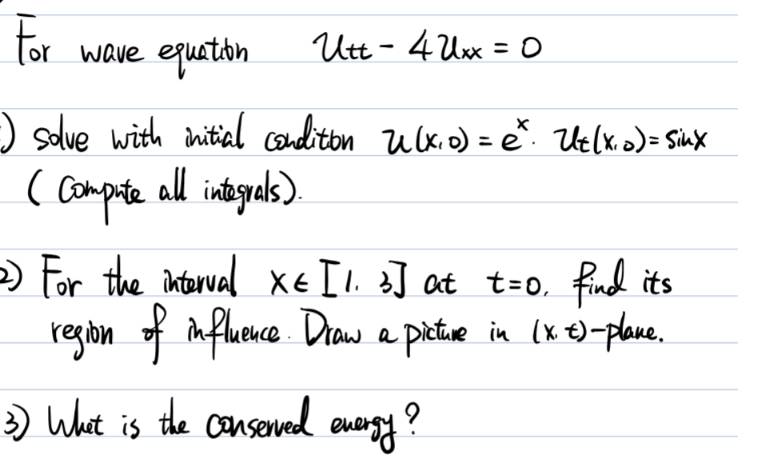 For wave equation Utt - 4Uxx = 0
) solve with initial condition u(x,0) = eˣ. Ut(x,0) = sinx
( Compute all integrals).
2) For the interval x ∈ [1. 3] at t=0, find its
region of influence. Draw a picture in (x.t)-plane.
3) What is the conserved energy?